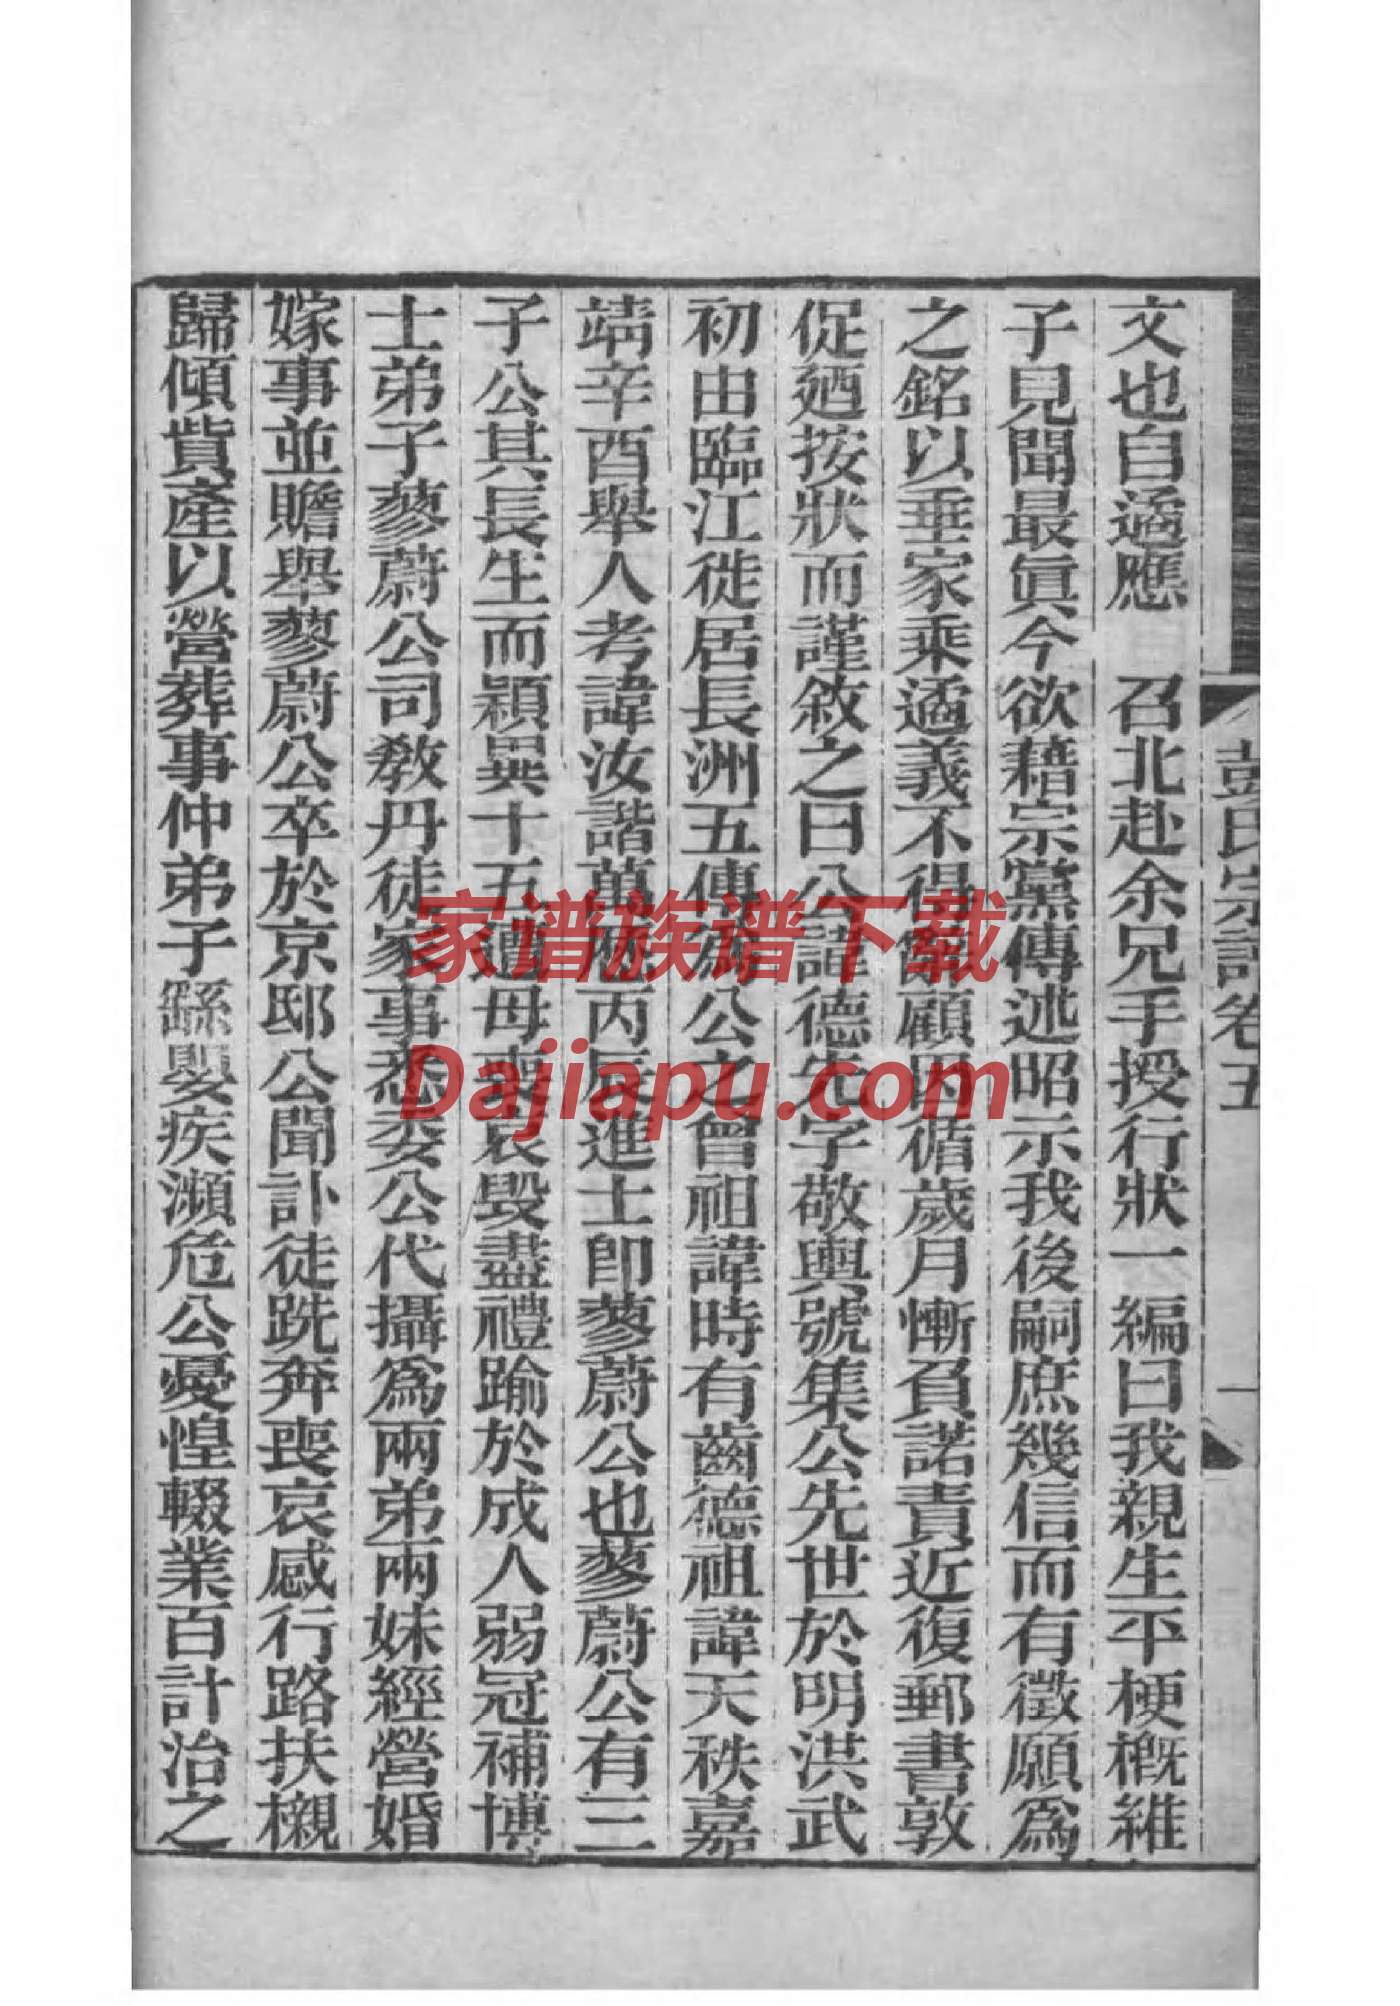 彭氏宗譜卷五
一
文也自適應　召北赴余兄手授行狀一編曰我親生平梗槪維
子見聞最眞今欲藉宗黨傳述昭示我後嗣庶幾信而有徵願爲
之銘以垂家乘適義不得辭顧因循歲月慚負諾責近復郵書敦
促廼按狀而謹敘之曰公諱德先字敬輿號集公先世於明洪武
初由臨江徙居長洲五傳爲公之曾祖諱時有齒德祖諱天秩嘉
靖辛酉舉人考諱汝諧萬歷丙辰進士卽蓼蔚公也蓼蔚公有三
子公其長生而穎異十五遭母喪哀毀盡禮踰於成人弱冠補博
士弟子蓼蔚公司敎丹徒家事悉委公代攝爲兩弟兩妹經營婚
嫁事並贍舉蓼蔚公卒於京邸公聞訃徒跣奔喪哀感行路扶櫬
歸傾貲產以營葬事仲弟子繇嬰疾瀕危公憂惶輟業百計治之
家谱族谱下载
Dajiapu.com